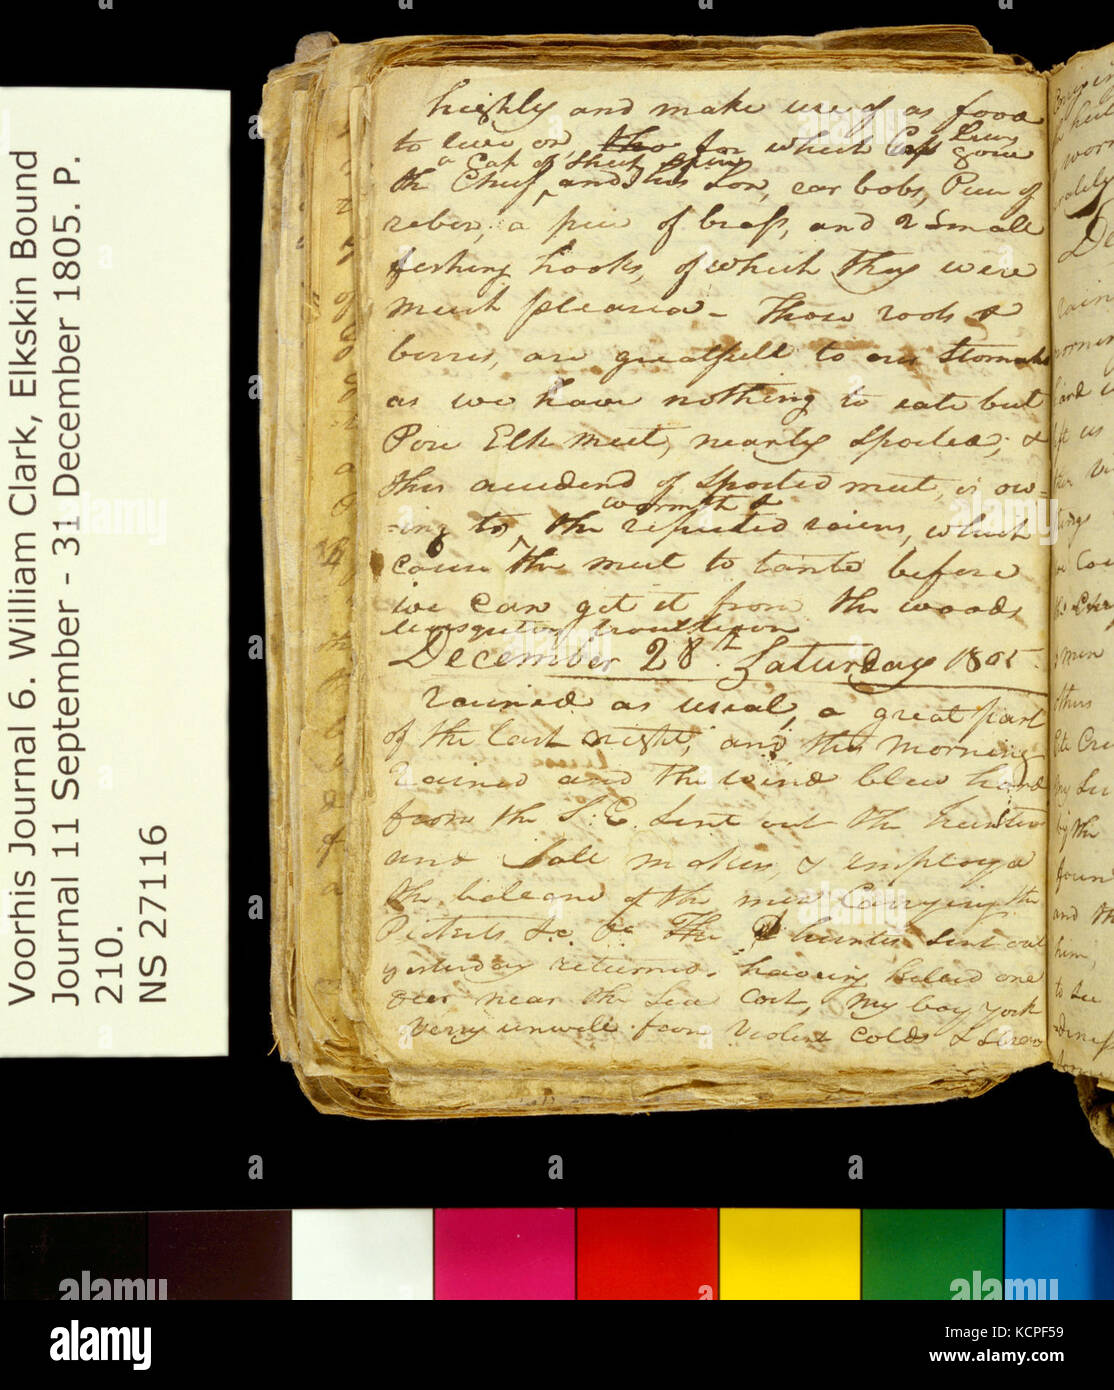 Voorhis Journal 6. William Clark, Elkskin Bound
Journal 11 September - 31 December 1805. P.
210.
NS 27116
highly and make use of as food
to live on, for which Capt Lewis gave
a Cap of Sheep Skin
the Chief and his Son, ear bobs, Piece of
reben, a piece of brass, and 2 Small
fishing hooks, of which they were
much pleased - Those roots &
berres, are greatfull to our Stomcks
as we have nothing to eate but
Pore Elk meet, nearly Spoiled; &
this accident of Spoiled meet, is ow-
warmth &
-ing to the repeeted rains, which
cause the meet to tainto before
we can get it from the woods
Musquetors troublesom
December 28th Saturday 1805
rained as usial, a great part
of the last night, and this morning
rained and the wind blew hard
from the S. E. Sent out the hunters
and Salt makers, & employed
the balance of the men Carrying the
Pickets &c. &c. The hunters Sent out
yesterday returned, haveing killed one
deer near the Sea Cost, my boy York
verry unwell from violent colds & Strain
alamy
Image ID: KCPF59
www.alamy.com